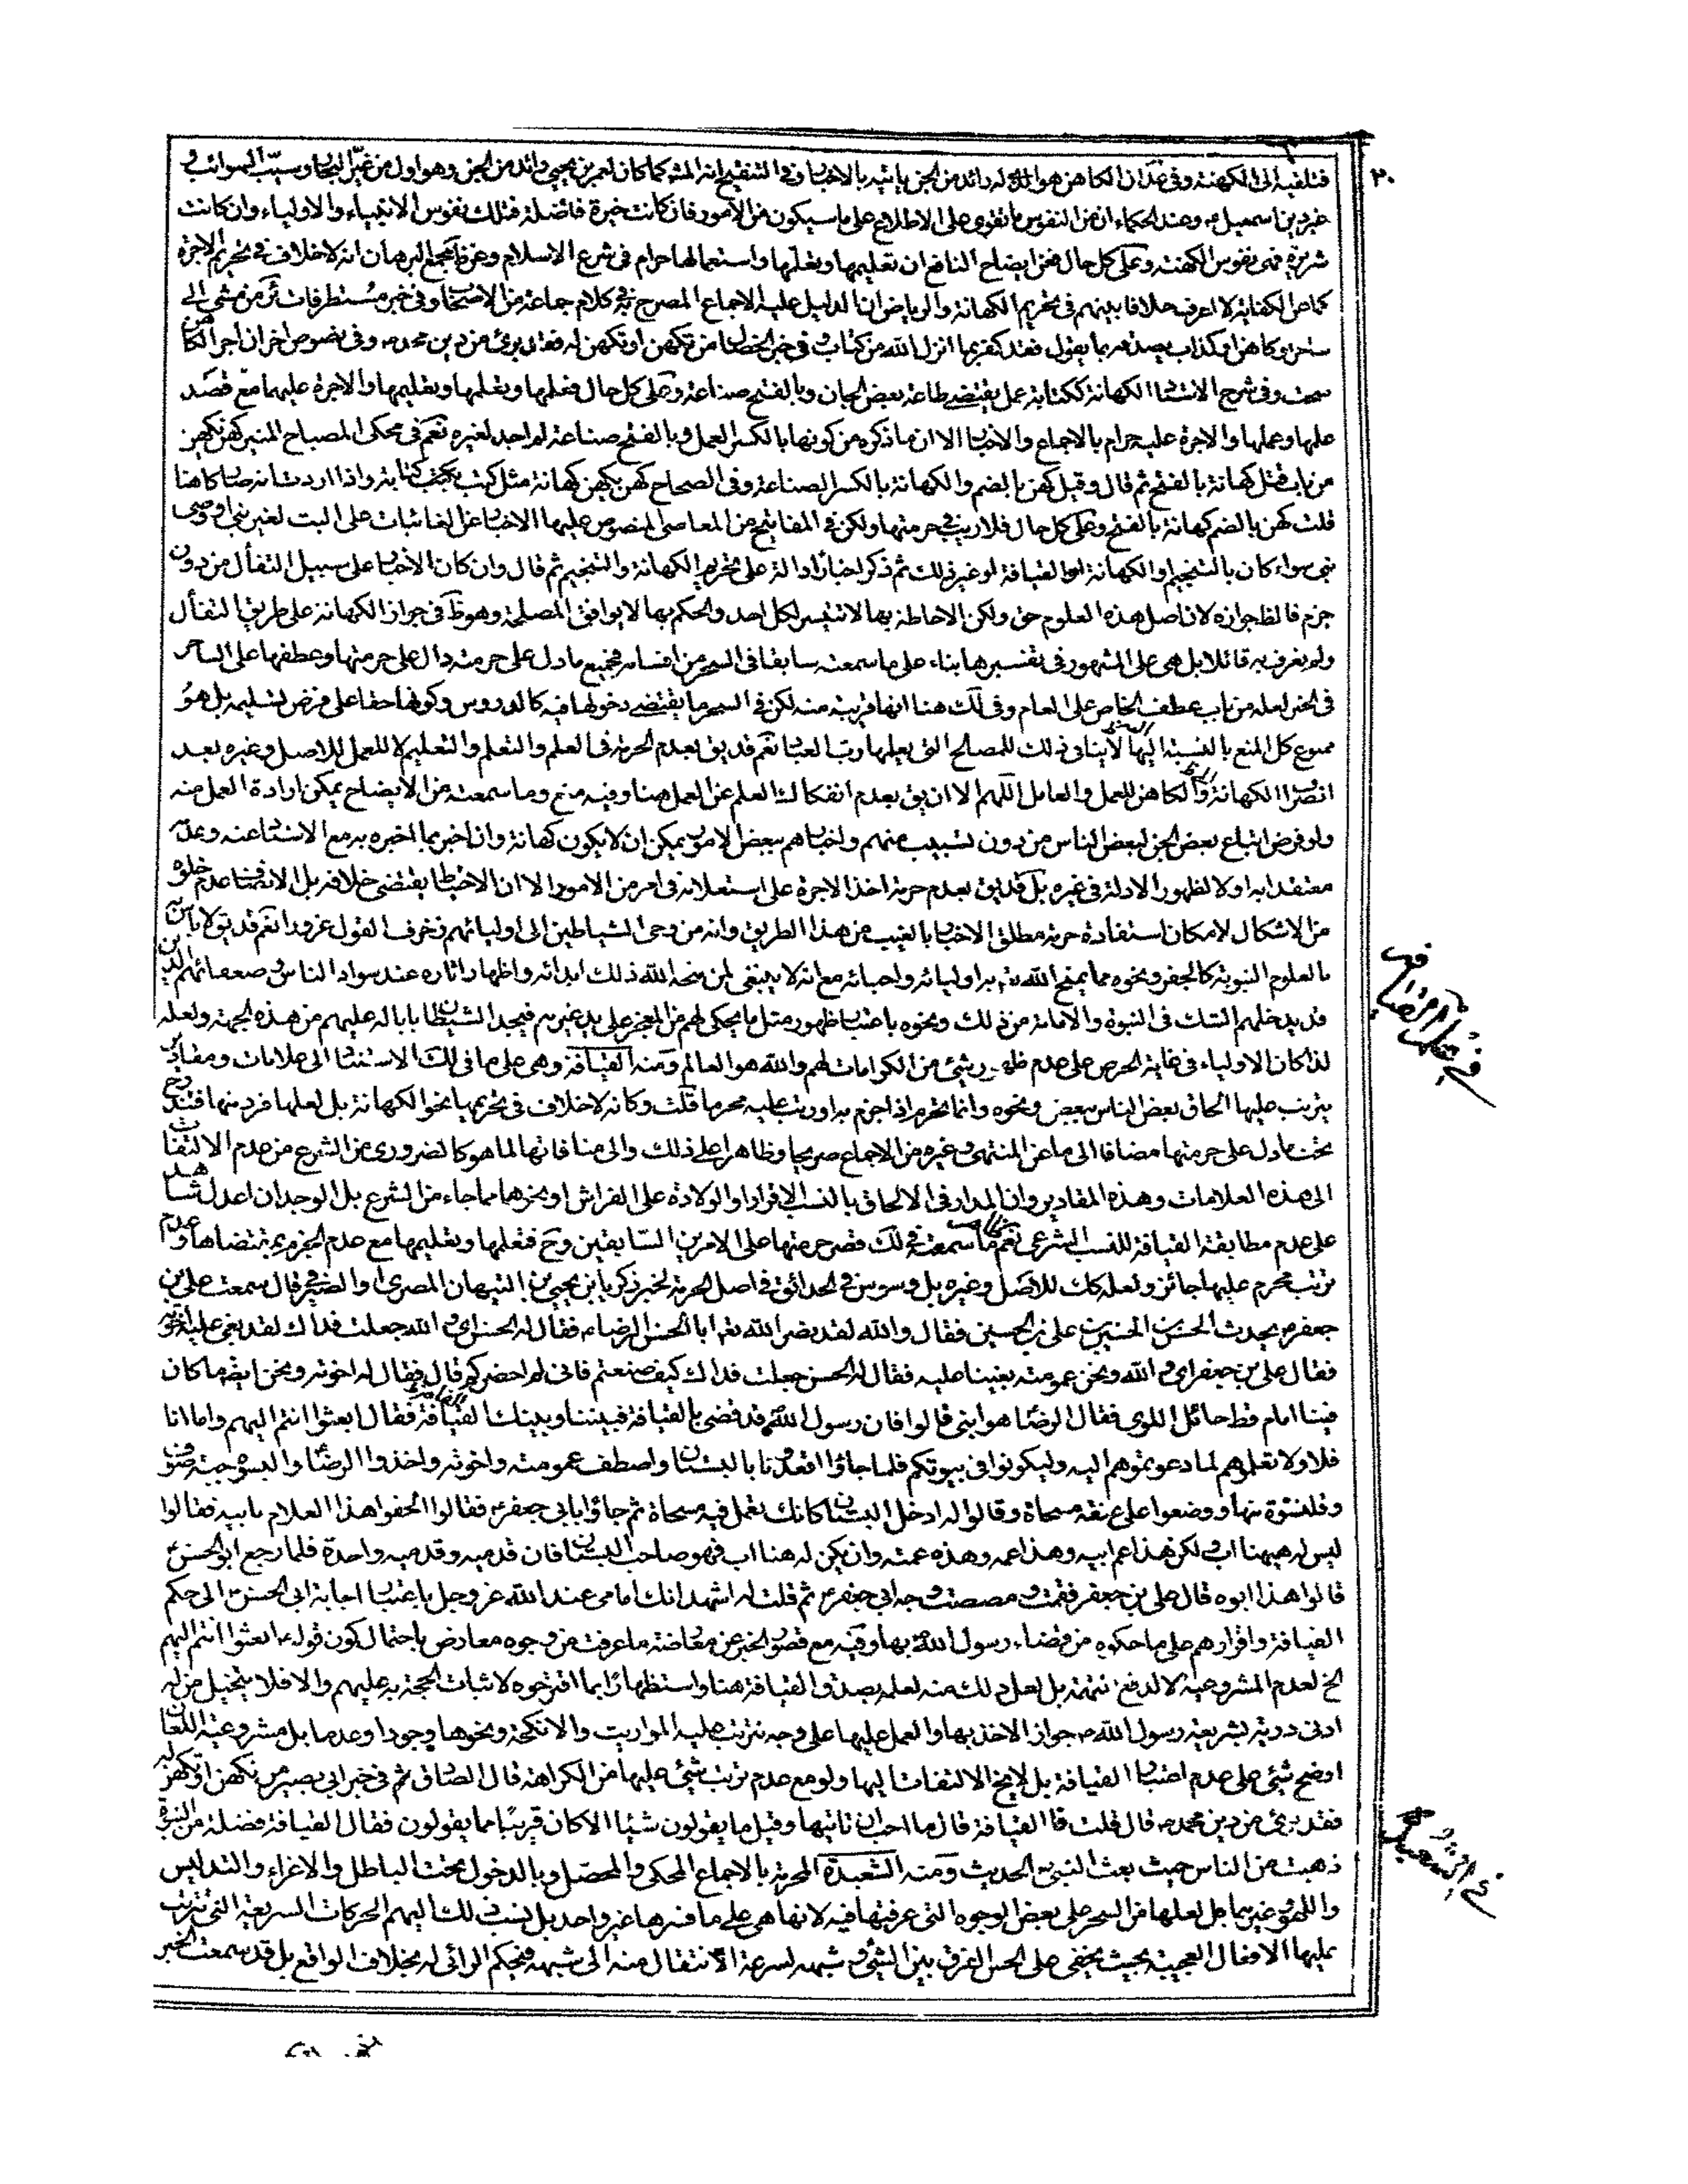 ٢٠
فتلقيه الى الكهنة وفى عد ان الكاهن هو الذى له رائد من الجن ياتيه بالاخبار وفى التنقيح انه المشهور كما كان لعمر بن يحيى رائد من الجن وهو اول من غير البحار وسيب السوائب فى
غير دين اسمعيل ع وعند الحكماء ان من النفوس ما تقوى على الاطلاع على ما سيكون من الامور فان كانت خيرة فاضلة فتلك نفوس الانبياء والاولياء وان كانت
شريرة فهى نفوس الكهنة وعلى كل حال فعن ايضاح النافع ان تعليمها وتعلمها واستعمالها حرام فى شرع الاسلام وعن مجمع البرهان انه لا خلاف فى تحريم الاجرة
كما عن الكفاية لا اعرف خلافا بينهم فى تحريم الكهانة والرياض ان الدليل عليه الاجماع المصرح به فى كلام جماعة من الاصحاب وفى خبر مستطرفات ئر من مشى الى
ساحر او كاهن او كذاب يصدقه بما يقول فقد كفر بما انزل الله من كتاب وفى خبر الخصال من تكهن او تكهن له فقد برئ من دين محمد ص وفى نصوص اخر ان اجر الكاهن
سحت وفى شرح الاستاد الكهانة ككتابة عمل يقتضى طاعة بعض الجان وبالفتح صناعة وعلى كل حال فعلمها وتعلمها وتعليمها والاجرة عليها مع قصد
علمها وعملها والاجرة عليه حرام بالاجماع والاخبار الا ان ما ذكره من كونها بالكسر العمل وبالفتح صناعة لم اجد لغيره نعم فى محكى المصباح المنير كهن تكهن
من باب قتل كهانة بالفتح ثم قال وقيل كهن بالضم والكهانة بالكسر الصناعة وفى الصحاح كهن يكهن كهانة مثل كتب يكتب كتابة واذا اردت انه صار كاهنا
قلت كهن بالضم كهانة بالفتح وعلى كل حال فلا ريب فى حرمتها ولكن فى المفاتيح من المعاصى المنصوص عليها الاخبار عن الغائبات على البت لغير نبى او وصى
نبى سواء كان بالتنجيم او الكهانة او القيافة او غير ذلك ثم ذكر اخبارا دالة على تحريم الكهانة والتنجيم ثم قال وان كان الاخبار على سبيل التفأل من دون
جزم فالظ جوازه لان اصل هذه العلوم حق ولكن الاحاطة بها لا تتيسر لكل احد والحكم بها لا يوافق المصلحة وهو ظ فى جواز الكهانة على طريق التفأل
ولم يعرف به قائلا بل هى على المشهور فى تفسيرها بناء على ما سمعته سابقا فى السحر من اقسامه فجميع ما دل على حرمته دال على حرمتها وعطفها على الساحر
فى الخبر لعله من باب عطف الخاص على العام وفى لك هنا انها قريبة منه لكن فى السحر ما يقتضى دخولها فيه كالدروس وكونها حقا على فرض تسليمه بل هو
ممنوع كل المنع بالنسبة اليها لا ينافى ذلك للمصالح التى يعلمها رب العباد نعم قد يق بعدم الحرمة فى العلم والتعلم والتعليم لا للعمل للاصل وغيره بعد
انصراف الكهانة والكاهن للعمل والعامل اللهم الا ان يق بعدم انفكاك العلم عن العمل هنا وفيه منع وما سمعته من الايضاح يمكن ارادة العمل منه
ولو فرض اتباع بعض الجن لبعض الناس من دون تسبيب منهم واخبارهم ببعض الامور يمكن ان لا يكون كهانة وان اخبر بما اخبره به مع الاستناد عنه وعدمه
معتقدا به او لا لظهور الادلة فى غيره بل قد يق بعدم حرمة اخذ الاجرة على استعلامه فى امر من الامور الا ان الاحتياط يقتضى خلافه بل الانصاف عدم خلوه
من الاشكال لامكان استفادة حرمة مطلق الاخبار بالغيب من هذا الطريق وانه من وحى الشياطين الى اوليائهم زخرف القول غرورا نعم قد يق لا باس به
بالعلوم النبوية كالجفر ونحوه مما يمنح الله تع به اوليائه واحبائه مع انه لا ينبغى لمن منحه الله ذلك ابدائه واظهار اثاره عند سواد الناس وضعفائهم الذين
قد يدخلهم الشك فى النبوة والامامة من ذلك ونحوه باعتبار ظهور مثل ما يحكى لهم من المعجز على يد غيرهم فيجد الشيطان بابا له عليهم من هذه الجهة ولعله
لذا كان الاولياء فى غاية الحرص على عدم ظهور شئ من الكرامات لهم والله هو العالم ومنه القيافة وهى على ما فى لك الاستناد الى علامات ومقادير
يترتب عليها الحاق بعض الناس ببعض ونحوه وانما يحرم اذا جزم به او رتب عليه محرما قلت وكانه لا خلاف فى تحريمها بنحو الكهانة بل لعلها فرد منها فتندرج
تحت ما دل على حرمتها مضافا الى ما عن المنتهى وغيره من الاجماع صريحا وظاهرا على ذلك والى منافاتها لما هو كالضرورى من الشرع من عدم الالتفات
الى هذه العلامات وهذه المقادير وان المدار فى الالحاق بالنسب الاقرار او الولادة على الفراش او نحوهما مما جاء من الشرع بل الوجدان اعدل شاهد
على عدم مطابقة القيافة للنسب الشرعى نعم ما سمعته فى لك قصر حرمتها على الامرين السابقين وح فتعلمها وتعليمها مع عدم الجزم بمقتضاها وعدم
ترتب محرم عليها جائز ولعله كك للاصل وغيره بل وسوس فى الحدائق فى اصل الحرمة لخبر زكريا بن يحيى بن النعمان المصرى او الصيرفى قال سمعت على بن
جعفر ع يحدث الحسن بن الحسين بن على بن الحسين فقال والله لقد نصر الله تع ابا الحسن الرضا ع فقال له الحسن اى والله جعلت فداك لقد بغى عليه اخوته
فقال على بن جعفر اى والله ونحن عمومته بغينا عليه فقال له الحسن جعلت فداك كيف صنعتم فانى لم احضركم قال فقال له اخوته ونحن ايضا ما كان
فينا امام قط حائل اللون فقال الرضا هو ابنى قالوا فان رسول الله ص قد قضى بالقيافة فبيننا وبينك القافة فقال ابعثوا انتم اليهم واما انا
فلا ولا تعلموهم لما دعوتموهم اليه وليكونوا فى بيوتكم فلما جاؤا اقعدونا بالبستان واصطف عمومته واخوته واخذوا الرضا والبسوه جبة صوف
وقلنسوة منها ووضعوا على عنقه مسحاة وقالوا له ادخل البستان كانك تعمل فيه مسحاة ثم جاؤا بابى جعفر ع فقالوا الحقوا هذا الغلام بابيه فقالوا
ليس له هيهنا اب لكن هذا عم ابيه وهذا عمه وهذه عمته وان يكن له هنا اب فهو صاحب البستان فان قدميه وقدميه واحدة فلما رجع ابو الحسن ع
قالوا هذا ابوه قال على بن جعفر فقمت ومصصت وجه ابى جعفر ع ثم قلت له اشهد انك امامى عند الله عز وجل باعتبار اجابة ابى الحسن ع الى حكم
القيافة واقرارهم على ما حكوه من قضاء رسول الله ص بها وفيه مع قصور الخبر عن معارضة ما عرفت من وجوه معارض باحتمال كون قوله ع ابعثوا انتم اليهم
الخ لعدم المشروعية لا لدفع تتهمة بل لعل ذلك منه لعلمه بصدق القيافة هنا واستظهارا بما اقترحوه لاثبات الحجة به عليهم والا فلا يتخيل من له
ادنى دربة بشريعة رسول الله ص جواز الاخذ بها والعمل عليها على وجه تترتب عليه المواريث والانكحة ونحوها وجودا وعدما بل مشروعية اللعان
اوضح شئ على عدم اعتبار القيافة بل لا يبح الالتفات اليها ولو مع عدم ترتب شئ عليها من الكراهة قال الصادق ع فى خبر ابى بصير من تكهن او تكهن له
فقد برئ من دين محمد ص قال قلت فالقيافة قال ما احب ان تاتيها وقيل ما يقولون شيئا الا كان قريبا مما يقولون فقال القيافة فضلة من النبوة
ذهبت من الناس حيث بعث النبى ص الحديث ومنه الشعبذة المحرمة بالاجماع المحكى والمحصل وبالدخول تحت الباطل والاغراء والتدليس
واللهو وغيرها بل لعلها من السحر على بعض الوجوه التى عرفتها فيه لانها هى على ما فسرها غير واحد بل نسب ذلك اليهم الحركات السريعة التى تترتب
عليها الافعال العجيبة بحيث يخفى على الحس الفرق بين الشئ وشبهه لسرعة الانتقال منه الى شبهه فيحكم الرائى له بخلاف الواقع بل قد سمعت الخبر